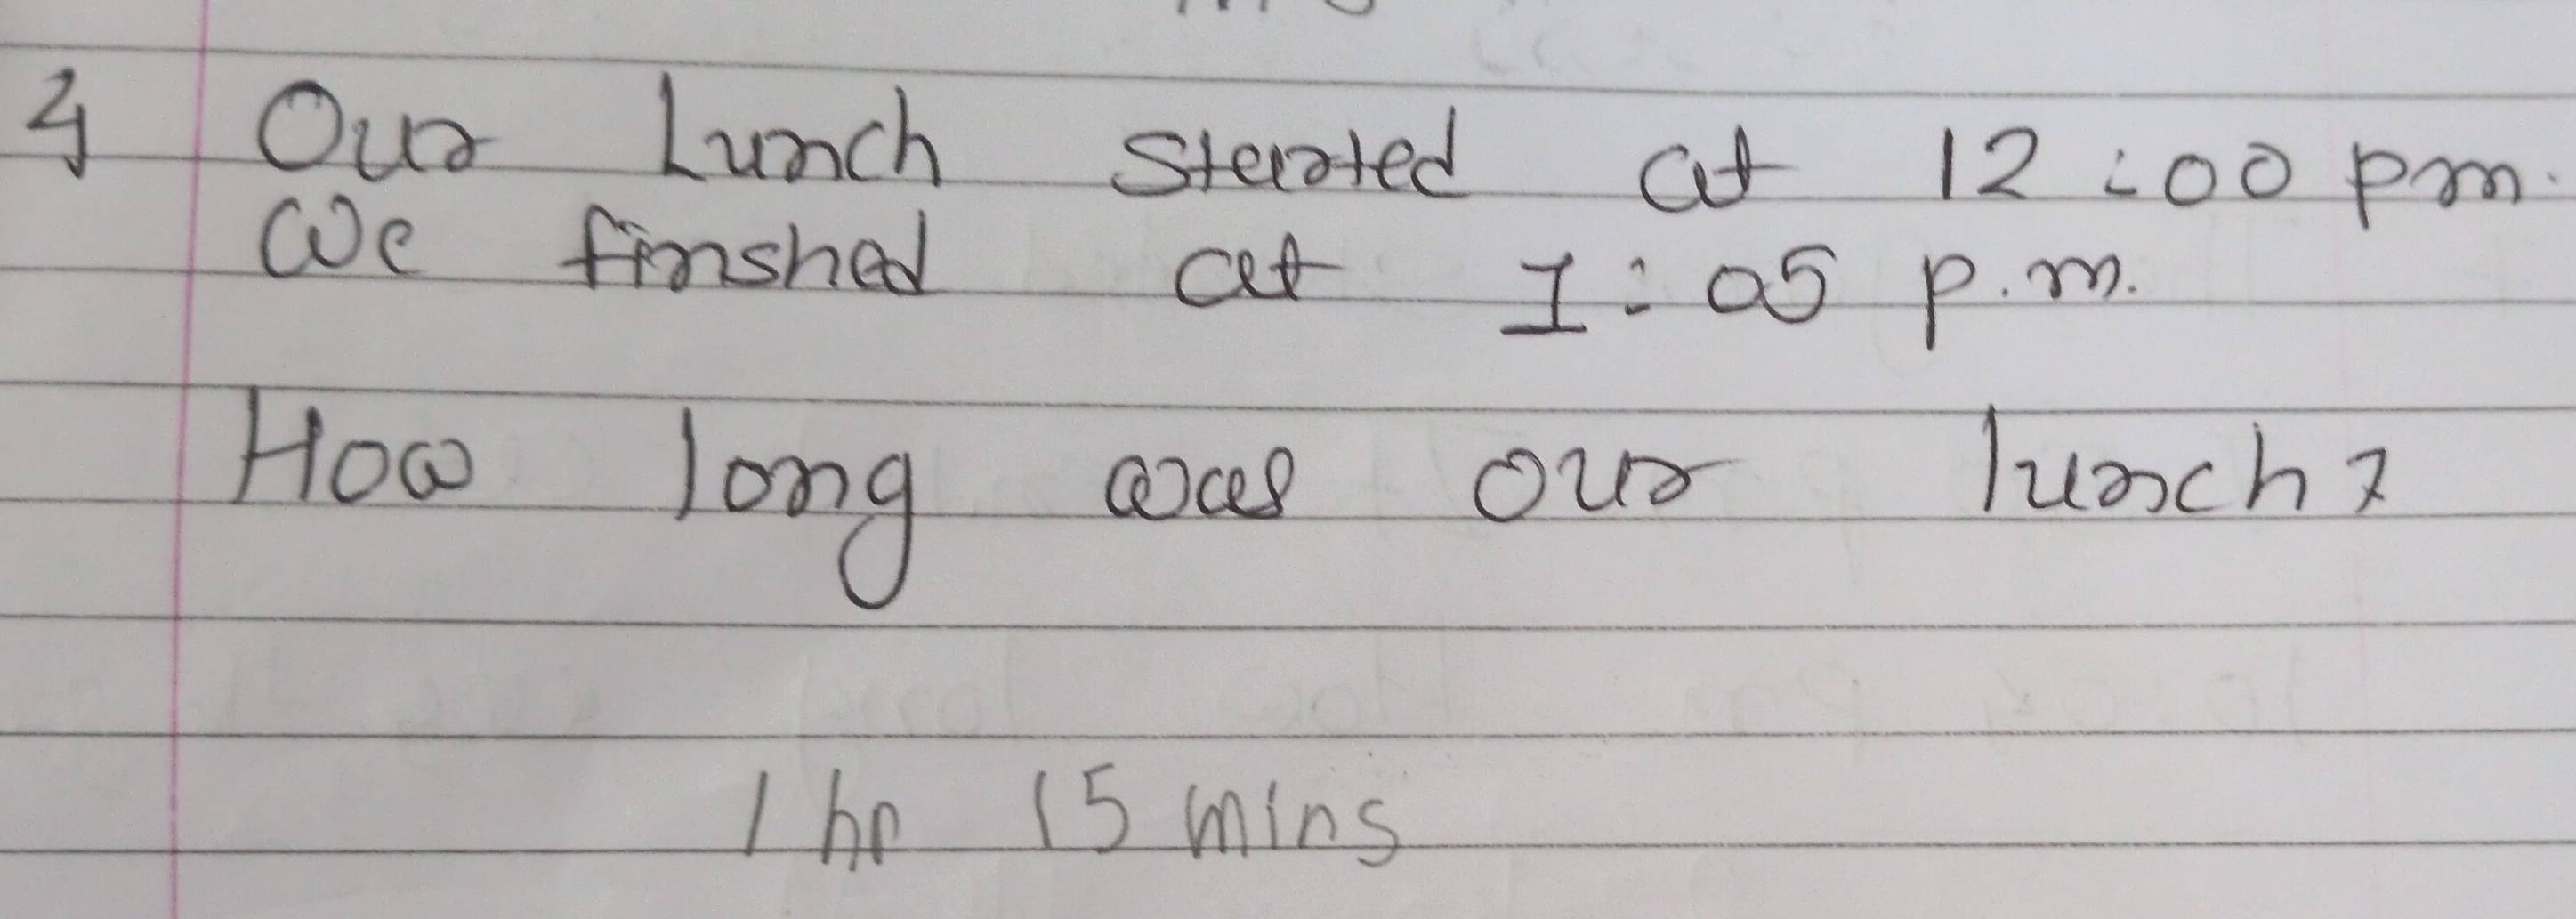 4 Our Lunch started at 12:00 pm.
We finshed at 1:05 p.m.
How long was our lunch?
1 hr 15 mins